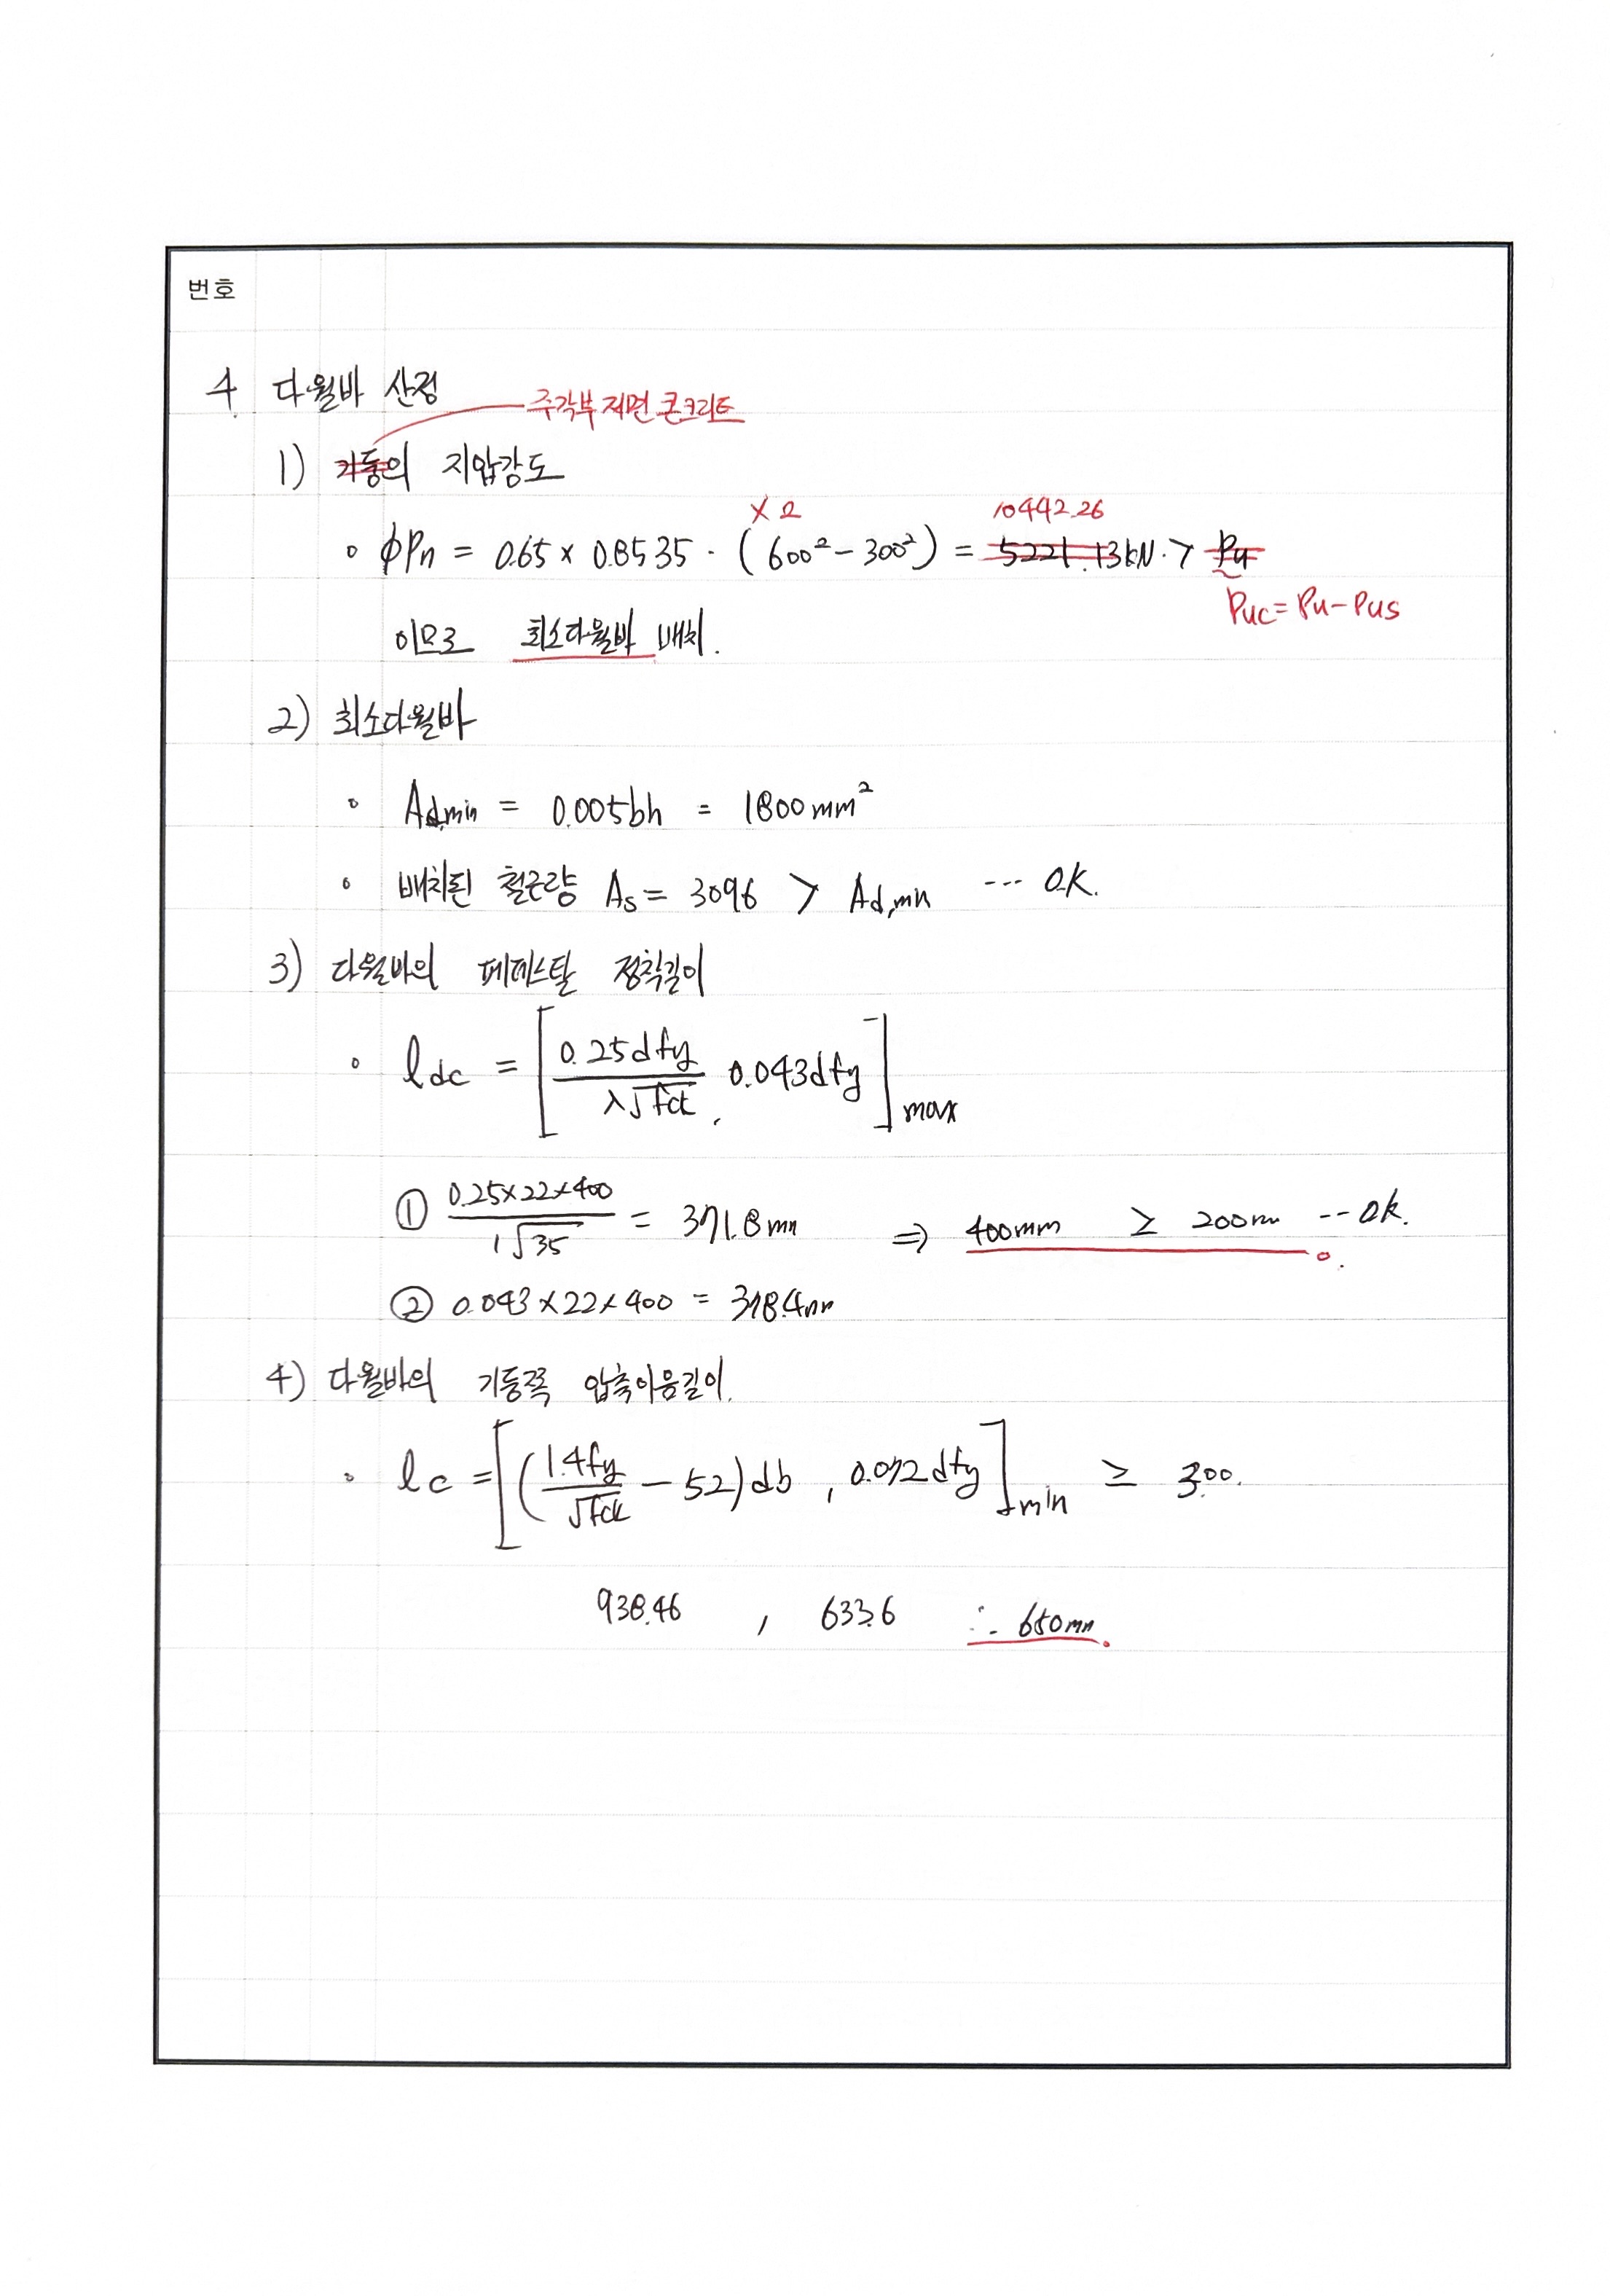 번호
4. 다월바 산정
주각부 저면 콘크리트
1) 기둥의 지압강도
× 2
10442.26
∘ ϕPn = 0.65 × 0.85 35 · (600² - 300²) = 5221.13kN. > Pu
Puc = Pu - Pus
이므로 최소다월바 배치.
2) 최소다월바
∘ Ad,min = 0.005bh = 1800mm²
∘ 배치된 철근량 As = 3096 > Ad,min --- OK.
3) 다월바의 페데스탈 정착길이
∘ ldc = [ 0.25dfy / λ√fck , 0.043dfy ] max
① 0.25×22×400 / 1√35 = 371.8mm ⇒ 400mm ≥ 200mm --- OK.
② 0.043×22×400 = 378.4mm
4) 다월바의 기둥쪽 압축이음길이.
∘ lc = [ ( 1.4fy / √fck - 52 ) db , 0.072dfy ] min ≥ 300.
938.46 , 633.6 ∴ 650mm.